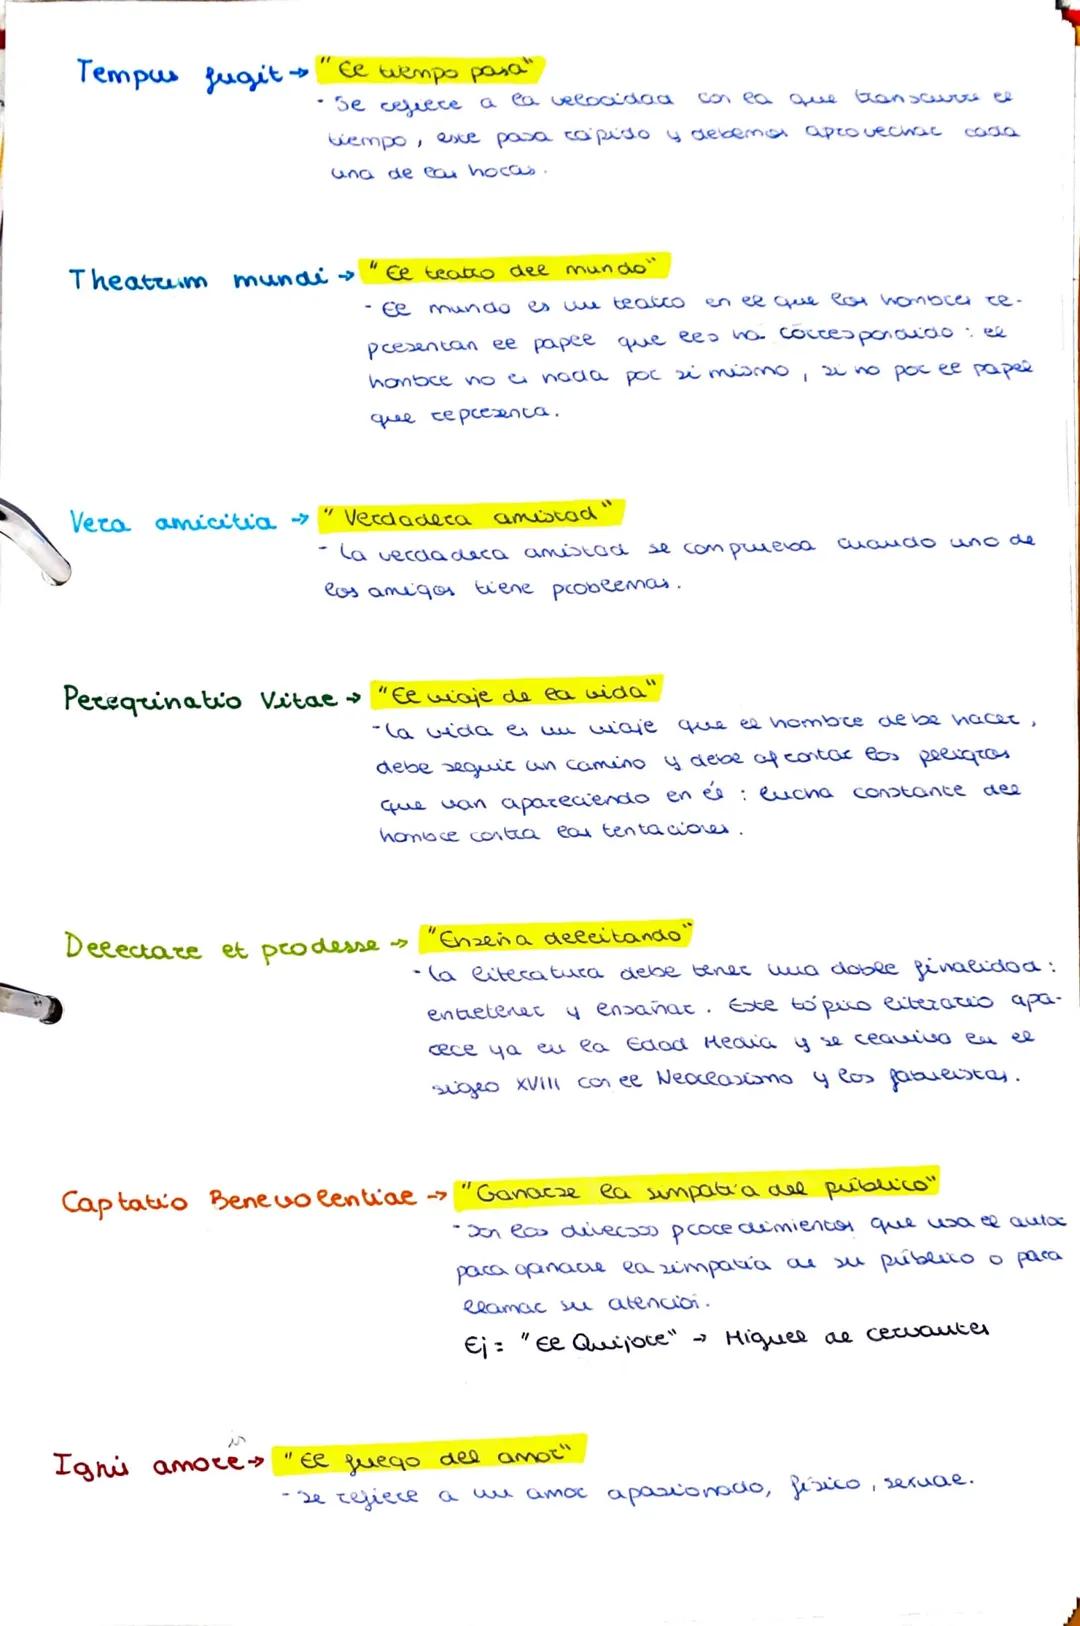 Tempus fugit → "El tiempo pasa"
- Se refiere a la velocidad con la que transcurre el
tiempo, este pasa rápido y debemos aprovechar cada
una de las horas.
Theatrum mundi → "El teatro del mundo"
- El mundo es un teatro en el que los hombres re-
presentan el papel que les ha correspondido: el
hombre no es nada por si mismo, si no por el papel
que representa.
Vera amicitia → "Verdadera amistad"
- La verdadera amistad se comprueba cuando uno de
los amigos tiene problemas.
Peregrinatio Vitae → "El viaje de la vida"
- La vida es un viaje que el hombre debe hacer,
debe seguir un camino y debe afrontar los peligros
que van apareciendo en él: lucha constante del
hombre contra las tentaciones.
Delectare et prodesse → "Enseña deleitando"
- La literatura debe tener una doble finalidad:
entretener y ensañar. Este tópico literario apa-
rece ya en la Edad Media y se reaviva en el
siglo XVIII con el Neoclasismo y los fabulistas.
Captatio Benevolentiae → "Ganarse la simpatía del público"
- Son los diversos procedimientos que usa el autor
para ganarse la simpatía de su público o para
llamar su atención.
Ej: "El Quijote" → Miguel de Cervantes
Ignis amoris → "El fuego del amor"
- Se refiere a un amor apasionado, físico, sexual.